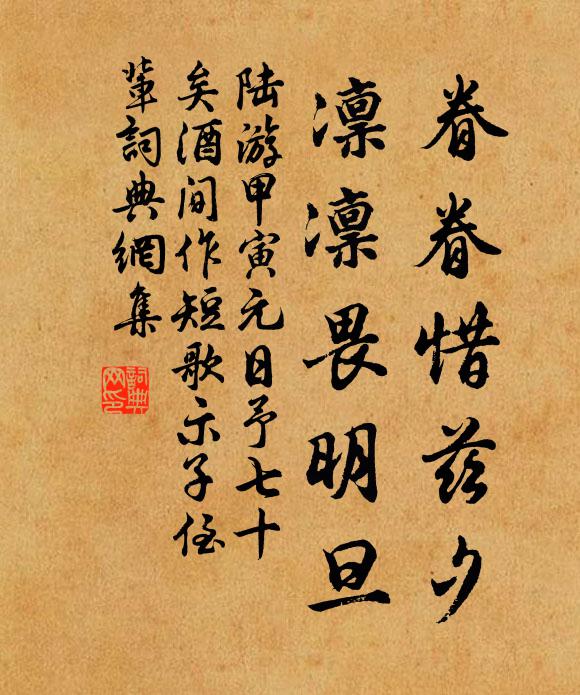 眷眷惜茲夕
凜凜畏明旦
陆游甲寅元日予七十
矣酒间作短歌示子侄
輩詞典網集
詞典
网印